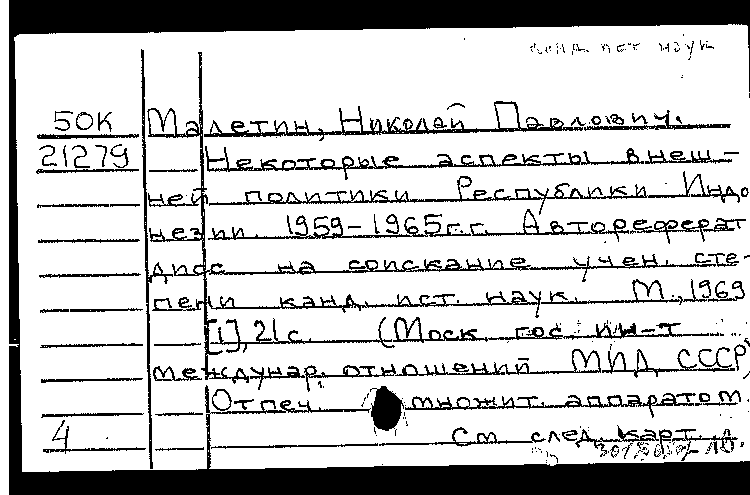 канд. ист наук
50К Малетин, Николай Павлович.
21279 Некоторые аспекты внеш-
ней политики Республики Индо
незии. 1959-1965г.г. Автореферат
дисс на соискание учен. сте-
пени канд. ист. наук. М., 1969
[1], 21с. (Моск. гос. ин-т
междунар. отношений МИД СССР)
Отпеч. множит. аппаратом.
4 См след. карт.